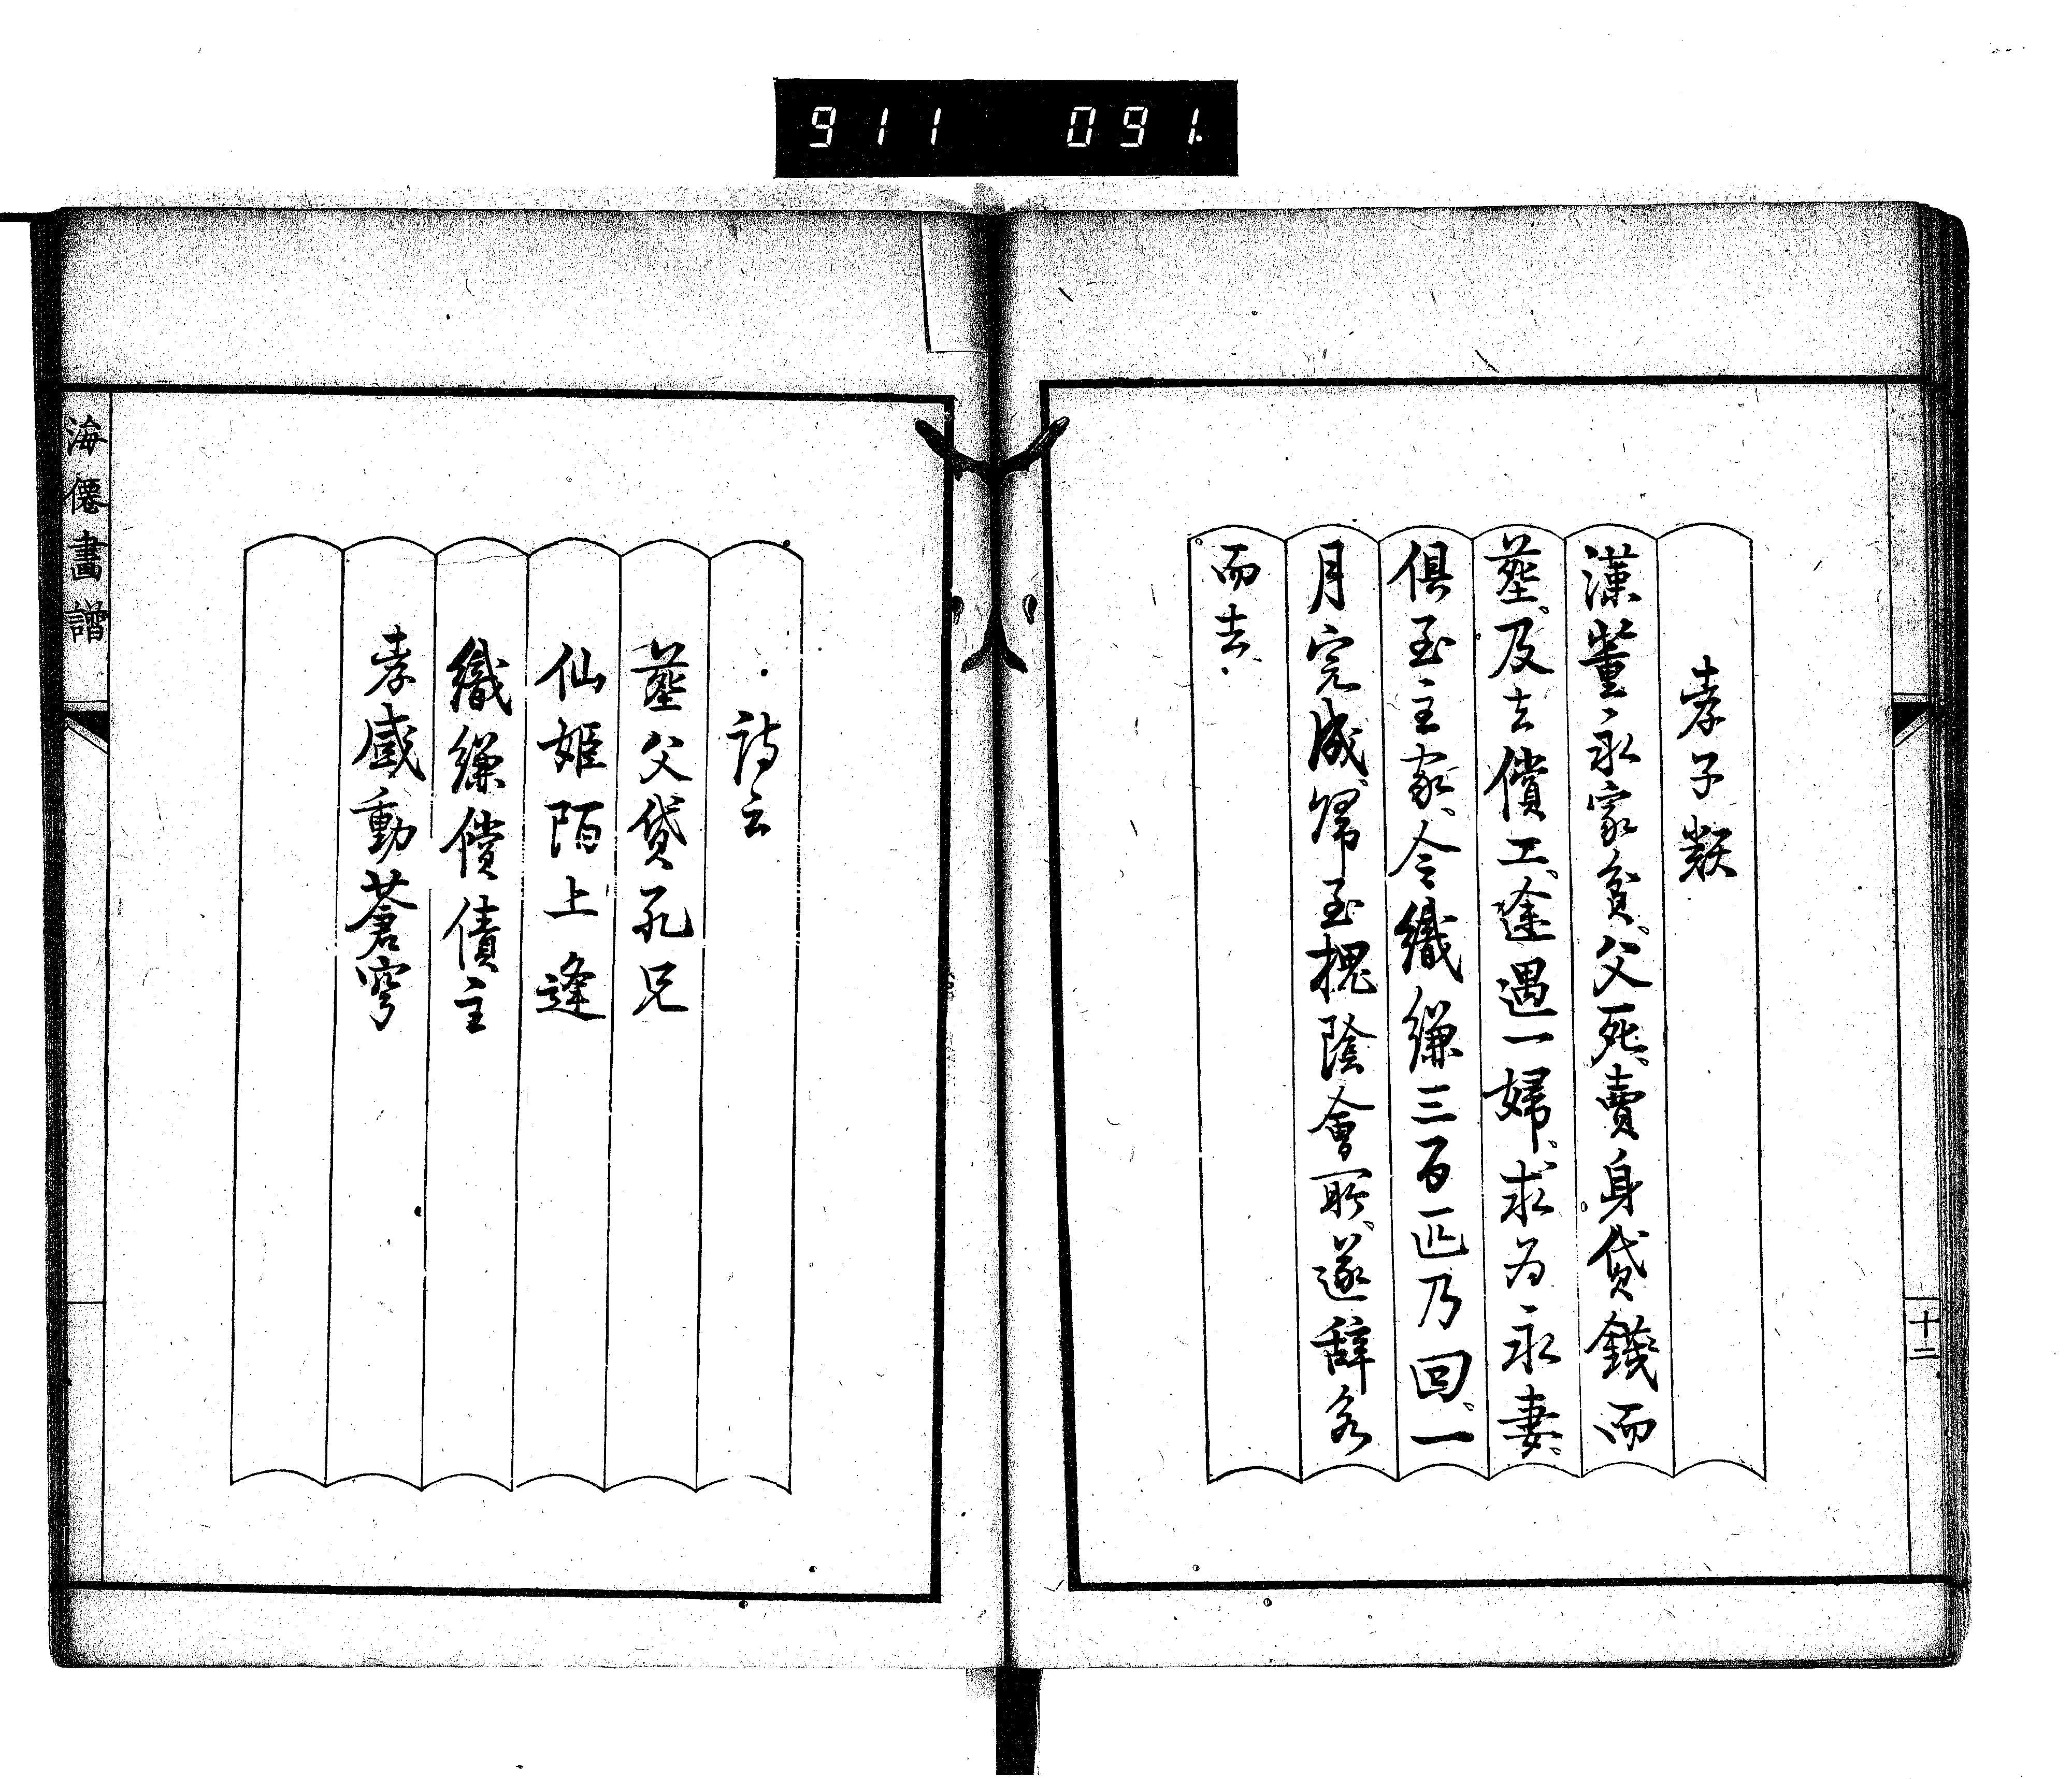 911 091.
孝子類
漢董永家貧、父死、賣身貸錢而
塟、及去償工、途遇一婦、求为永妻、
俱至主家、令織縑三百匹乃回、一
月完成、歸至槐陰會所、遂辞永
而去、
十二
詩云
塟父貸孔兄
仙姬陌上逢
織縑償債主
孝感動蒼穹
海僊畫譜